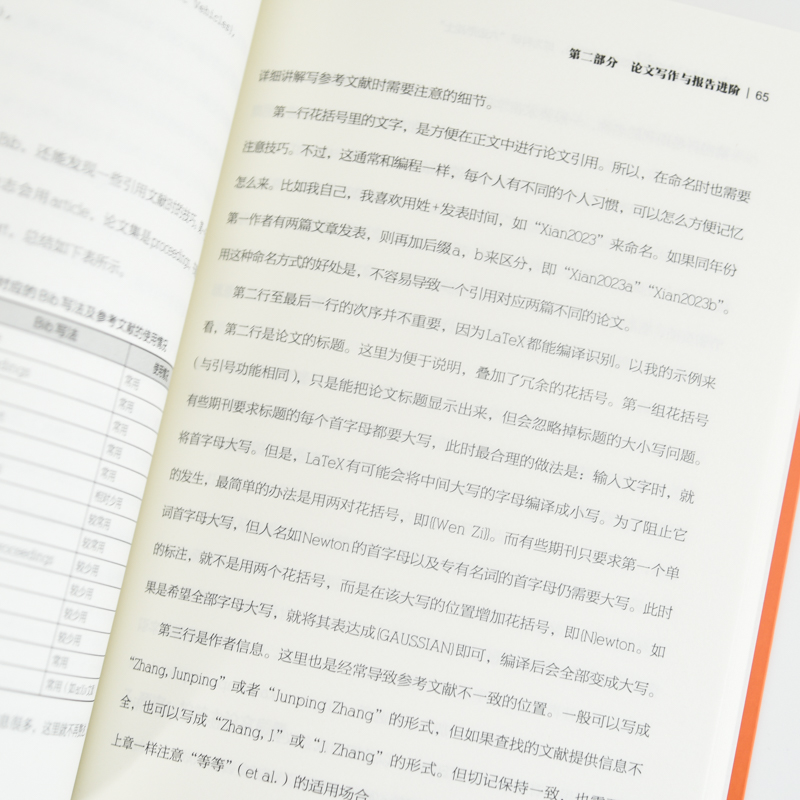 Vehicles),
Bib，还能发现一些引用文献的技巧，
态会用article，论文集是proceeding，
总结如下表所示。
对应的Bib写法及参考文献的使用情况
Bib写法
使用情
常用
常用
常用
常用
常用
相对少用
较常用
较常用
roceedings
较少用
较少用
较少用
较少用
常用
第二部分 论文写作与报告进阶 | 65
详细讲解写参考文献时需要注意的细节。
第一行花括号里的文字，是方便在正文中进行论文引用。所以，在命名时也需要
注意技巧。不过，这通常和编程一样，每个人有不同的个人习惯，可以怎么方便记忆
怎么来。比如我自己，我喜欢用姓+发表时间，如“Xian2023”来命名。如果同年份
第一作者有两篇文章发表，则再加后缀a，b来区分，即“Xian2023a”“Xian2023b”。
用这种命名方式的好处是，不容易导致一个引用对应两篇不同的论文。
第二行至最后一行的次序并不重要，因为LaTeX都能编译识别。以我的示例来
看，第二行是论文的标题。这里为便于说明，叠加了冗余的花括号。第一组花括号
（与引号功能相同），只是能把论文标题显示出来，但会忽略掉标题的大小写问题。
有些期刊要求标题的每个首字母都要大写，此时最合理的做法是：输入文字时，就
将首字母大写。但是，LaTeX有可能会将中间大写的字母编译成小写。为了阻止它
的发生，最简单的办法是用两对花括号，即{{Wen Zi}}。而有些期刊只要求第一个单
词首字母大写，但人名如Newton的首字母以及专有名词的首字母仍需要大写。此时
的标注，就不是用两个花括号，而是在该大写的位置增加花括号，即{N}ewton。如
果是希望全部字母大写，就将其表达成{GAUSSIAN}即可，编译后会全部变成大写。
第三行是作者信息。这里也是经常导致参考文献不一致的位置。一般可以写成
“Zhang, Junping”或者“Junping Zhang”的形式，但如果查找的文献提供信息不
全，也可以写成“Zhang, J.”或“J. Zhang”的形式。但切记保持一致，也需
上章一样注意“等等”（et al.）的适用场合。